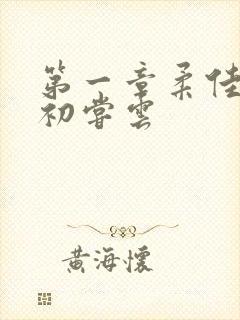 第一章柔佳
初尝雲
黄海懷